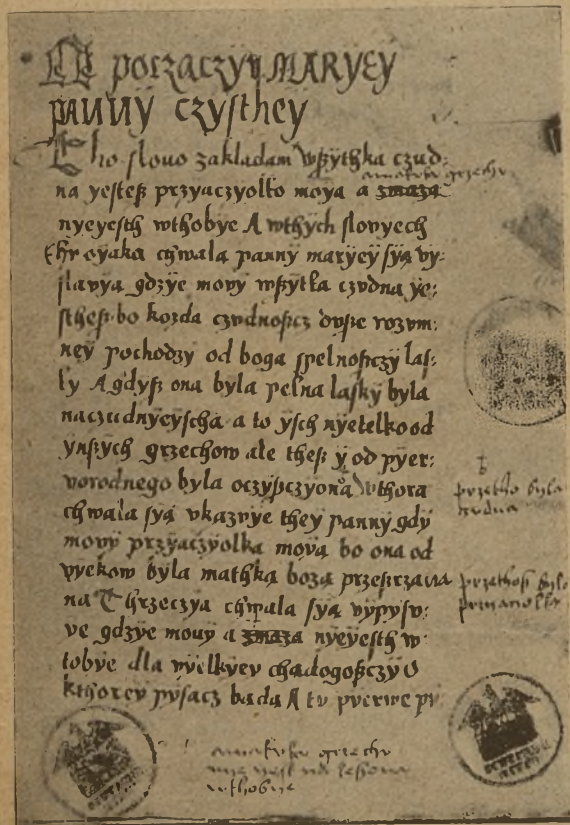 poczaczyv MARYEY
pannÿ czysthey
Tho slouo zakladam wszÿthka czud:
na yesteß przyaczyolko moya a zmaza
nyeyesth wthobye A wthÿch slouyech
throyaka chwala pannÿ marÿeÿ sÿą vy:
slauya gdzÿe mouy wßÿtka czvdna ÿe:
stheß bo kozda czvdnoscz duße rozvm:
neÿ pochodzy od boga spelnoßczy las:
ky A gdyß ona byla pelna laskÿ byla
naczudnyeyscha a to ÿsch nÿetelko od
ynßych grzechow ale theß ÿ od pyer:
vorodnego byla oczÿßczyona Wthora
chwala sÿą vkazvye they pannÿ gdÿ
mouy przÿaczÿolka moya bo ona od
vyekow byla mathka boza przeÿrzana
na Thrzeczya chwala sÿą vÿpysv:
ye gdzye mouy a zmaza nyeyesth w
tobye dla wyelkyey chadogoßczy O
kthoreÿ pÿsacz bada A tv pyerwe
grzechv
przetho byla
grzechv
wthobye